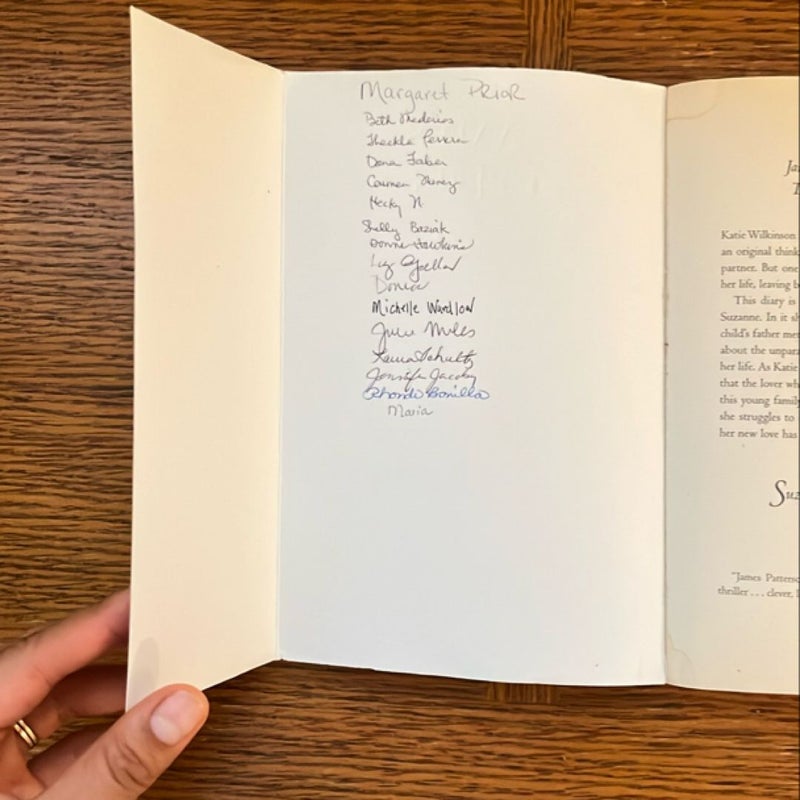 Margaret PRIOR
Beth Medeiros
Theckla
Dona Faber
Carmen
Necky N
Shelly Baziak
Donna Hawkins
Liz
Donise
Michelle Wardlow
Julie Miles
Laura Schultz
Jennifer Jacoby
Rhonda Bonilla
Maria
Katie Wilkinson
an original think
partner. But one
her life, leaving b
This diary is
Suzanne. In it sh
child's father met
about the unpara
her life. As Katie
that the lover wh
this young family
she struggles to
her new love has
Suz
"James Patterso
thriller . . . clever,